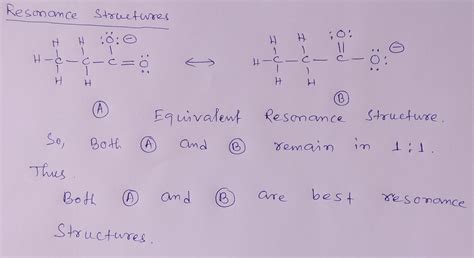 Resonance Structures
H H :Ö: ⊖
H – C – C – C = O
H H
Ⓐ
↔
H H :O:
H – C – C – C – Ö: ⊖
H H
Ⓑ
Equivalent Resonance Structure.
So, Both Ⓐ and Ⓑ remain in 1:1.
Thus.
Both Ⓐ and Ⓑ are best resonance
Structures.